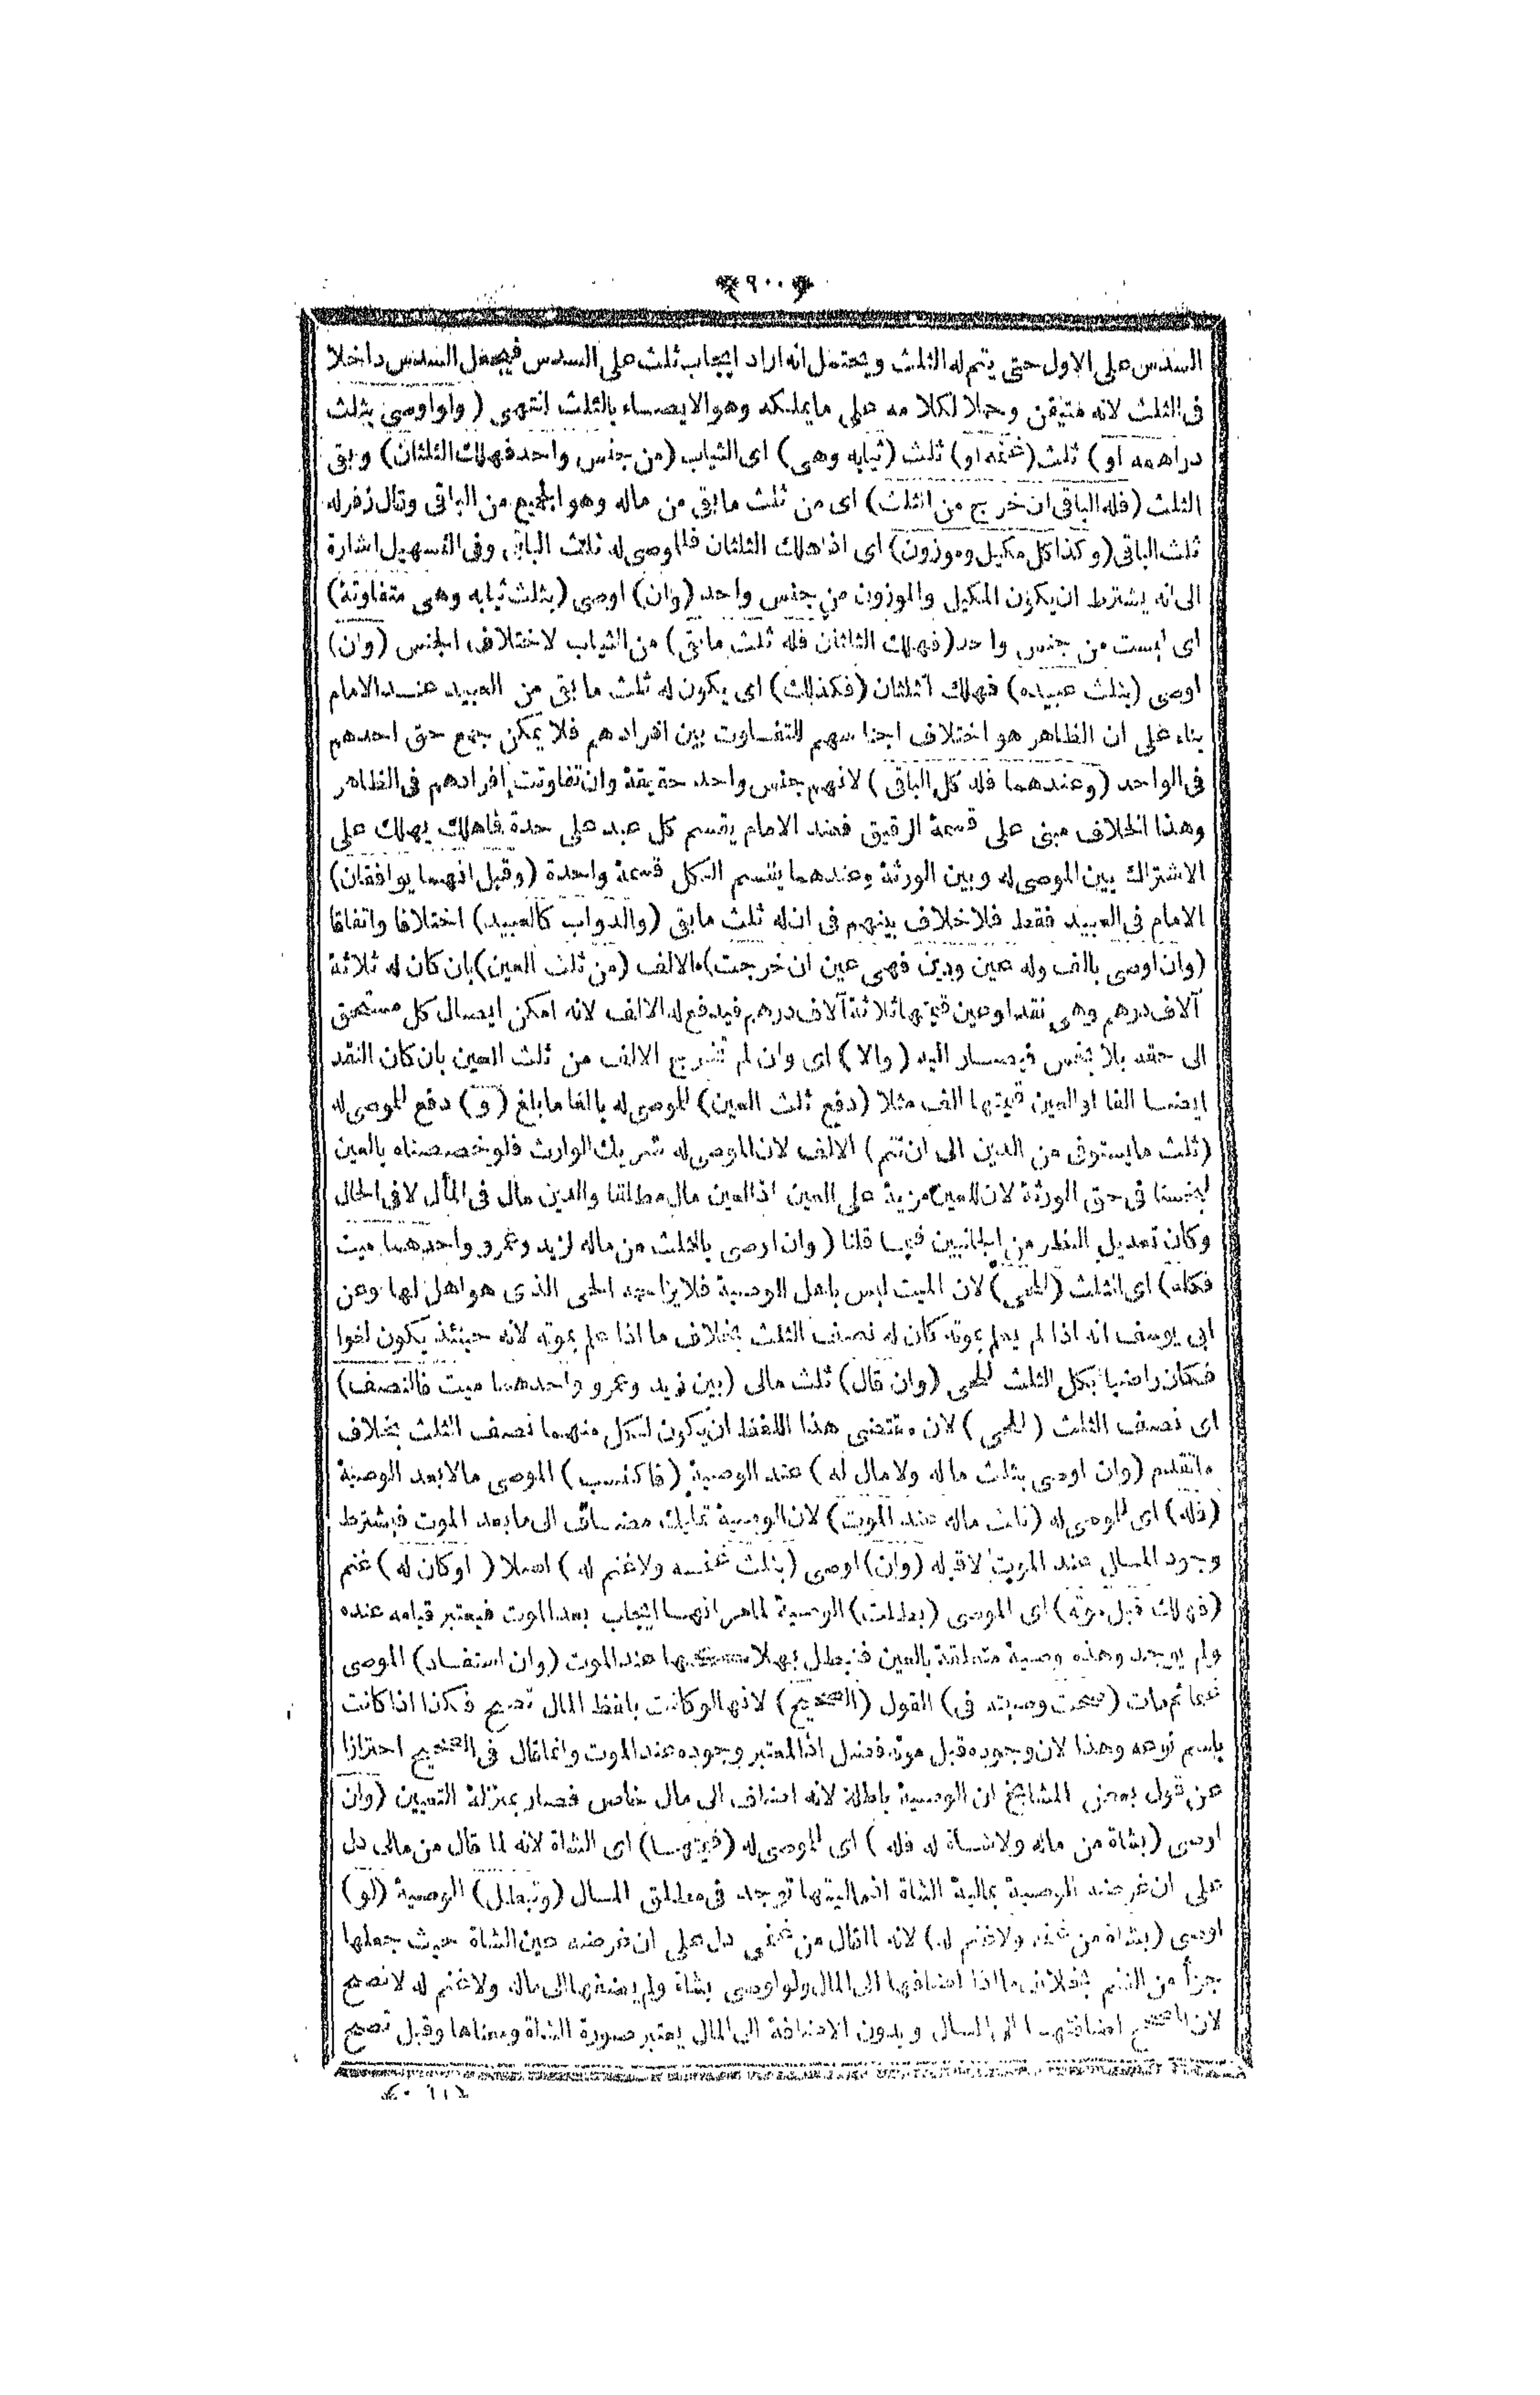 ٧٠٠
السدس على الاول حتى يتم له الثلث ويحتمل انه اراد ايجاب ثلث على السدس فيجعل السدس داخلا
فى الثلث لانه متيقن وحملا لكلامه على مايملكه وهو الايصاء بالثلث انتهى ( ولو اوصى بثلث
دراهمه او ) ثلث (غنمه او) ثلث (ثيابه وهى) اى الثياب (من جنس واحد فهلك الثلثان) وبقى
الثلث (فله الباقى ان خرج من الثلث) اى من ثلث مابقى من ماله وهو الجميع من الباقى وقال زفر له
ثلث الباقى (وكذا كل مكيل وموزون) اى اذا هلك الثلثان فللموصى له ثلث الباقى وفى التسهيل اشارة
الى انه يشترط ان يكون المكيل والموزون من جنس واحد (وان) اوصى (بثلث ثيابه وهى متفاوتة)
اى ليست من جنس واحد (فهلك الثلثان فله ثلث مابقى) من الثياب لاختلاف الجنس (وان)
اوصى (بثلث عبيده) فهلك الثلثان (فكذلك) اى يكون له ثلث ما بقى من العبيد عند الامام
بناء على ان الظاهر هو اختلاف اجناسهم للتفاوت بين افرادهم فلا يمكن جمع حق احدهم
فى الواحد (وعندهما فله كل الباقى) لانهم جنس واحد حقيقة وان تفاوتت افرادهم فى الظاهر
وهذا الخلاف مبنى على قسمة الرقيق فعند الامام يقسم كل عبد على حدة فاهلك يهلك على
الاشتراك بين الموصى له وبين الورثة وعندهما يقسم الكل قسمة واحدة (وقيل انهما يوافقان)
الامام فى العبيد فقط فلاخلاف بينهم فى ان له ثلث مابقى (والدواب كالعبيد) اختلافا واتفاقا
(وان اوصى بالف وله عين ودين فهى عين ان خرجت) الالف (من ثلث العين) بان كان له ثلاثة
آلاف درهم وهى نقد او عين قيمتها ثلاثة آلاف درهم فيدفع له الالف لانه امكن ايصال كل مستحق
الى حقه بلا بخس فيصار اليه (والا) اى وان لم تخرج الالف من ثلث العين بان كان النقد
ايضا الفا او العين قيمتها الف مثلا (دفع ثلث العين) للموصى له بالغا مابلغ (و) دفع للموصى له
(ثلث مايستوفى من الدين الى ان تتم) الالف لان الموصى له شريك الوارث فلو خصصناه بالعين
لبخسنا فى حق الورثة لان للعين مزية على العين اذ العين مال مطلقا والدين مال فى المأل لا فى الحال
وكان تعديل النظر من الجانبين فيما قلنا (وان اوصى بالثلث من ماله لزيد وعمرو واحدهما ميت
فكله) اى الثلث (للحى) لان الميت ليس باهل الوصية فلا يزاحمه الحى الذى هو اهل لها وعن
ابى يوسف انه اذا لم يعلم بموته كان له نصف الثلث بخلاف ما اذا علم بموته لانه حينئذ يكون لغوا
فكان راضيا بكل الثلث للحى (وان قال) ثلث مالى (بين زيد وعمرو واحدهما ميت فالنصف)
اى نصف الثلث (للحى) لان مقتضى هذا اللفظ ان يكون لكل منهما نصف الثلث بخلاف
ماتقدم (وان اوصى بثلث ماله ولا مال له) عند الوصية (فاكتسب) الموصى مالا بعد الوصية
(فله) اى للموصى له (ثلث ماله عند الموت) لان الوصية تمليك مضاف الى مابعد الموت فيشترط
وجود المال عند الموت لاقبله (وان) اوصى (بثلث غنمه ولاغنم له) اصلا (اوكان له) غنم
(فهلك قبل موته) اى الموصى (بطلت) الوصية لمامر انها ايجاب بعد الموت فيعتبر قيامه عنده
ولم يوجد وهذه وصية متعلقة بالعين فتبطل بهلاكها عند الموت (وان استفاد) الموصى
غنما ثم مات (صحت وصيته فى) القول (الصحيح) لانها لو كانت بلفظ المال تصح فكذا اذا كانت
باسم نوعه وهذا لان وجوده قبل موته فضل اذ المعتبر وجوده عند الموت وانما قال فى الصحيح احترازا
عن قول بعض المشايخ ان الوصية باطلة لانه اضاف الى مال خاص فصار بمنزلة التعيين (وان
اوصى (بشاة من ماله ولاشاة له فله) اى للموصى له (قيمتها) اى الشاة لانه لما قال من مالى دل
على ان غرضه الوصية بمالية الشاة اذ ماليتها توجد فى مطلق المال (وتبطل) الوصية (لو)
اوصى (بشاة من غنمه ولاغنم له) لانه لما قال من غنمى دل على ان غرضه عين الشاة حيث جعلها
جزأ من الغنم بخلاف ما اذا اضافها الى المال ولو اوصى بشاة ولم يضفها الى ماله ولاغنم له لاتصح
لان المصحح اضافتها الى المال وبدون الاضافة الى المال يعتبر صورة الشاة ومعناها وقيل تصح